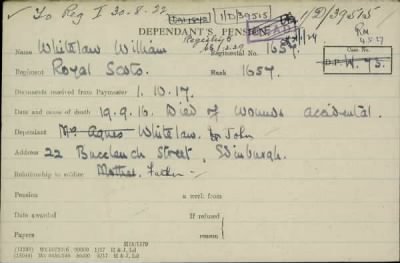 ✓ To Reg I 30.8.22 1/D/39515 1/D/39515
DEPENDANT'S PENSION.
Name Whitelaw William Regimental No. 1657
Regiment Royal Scots. Rank 1657. Case No.
Documents received from Paymaster 1.10.17.
Date and cause of death 19.9.16. Died of Wounds accidental.
Dependant Mrs Agnes Whitelaw. John
Address 22 Buccleuch Street, Edinburgh.
Relationship to soldier Mother. Father
Pension a week from
Date awarded If refused
Payers reason